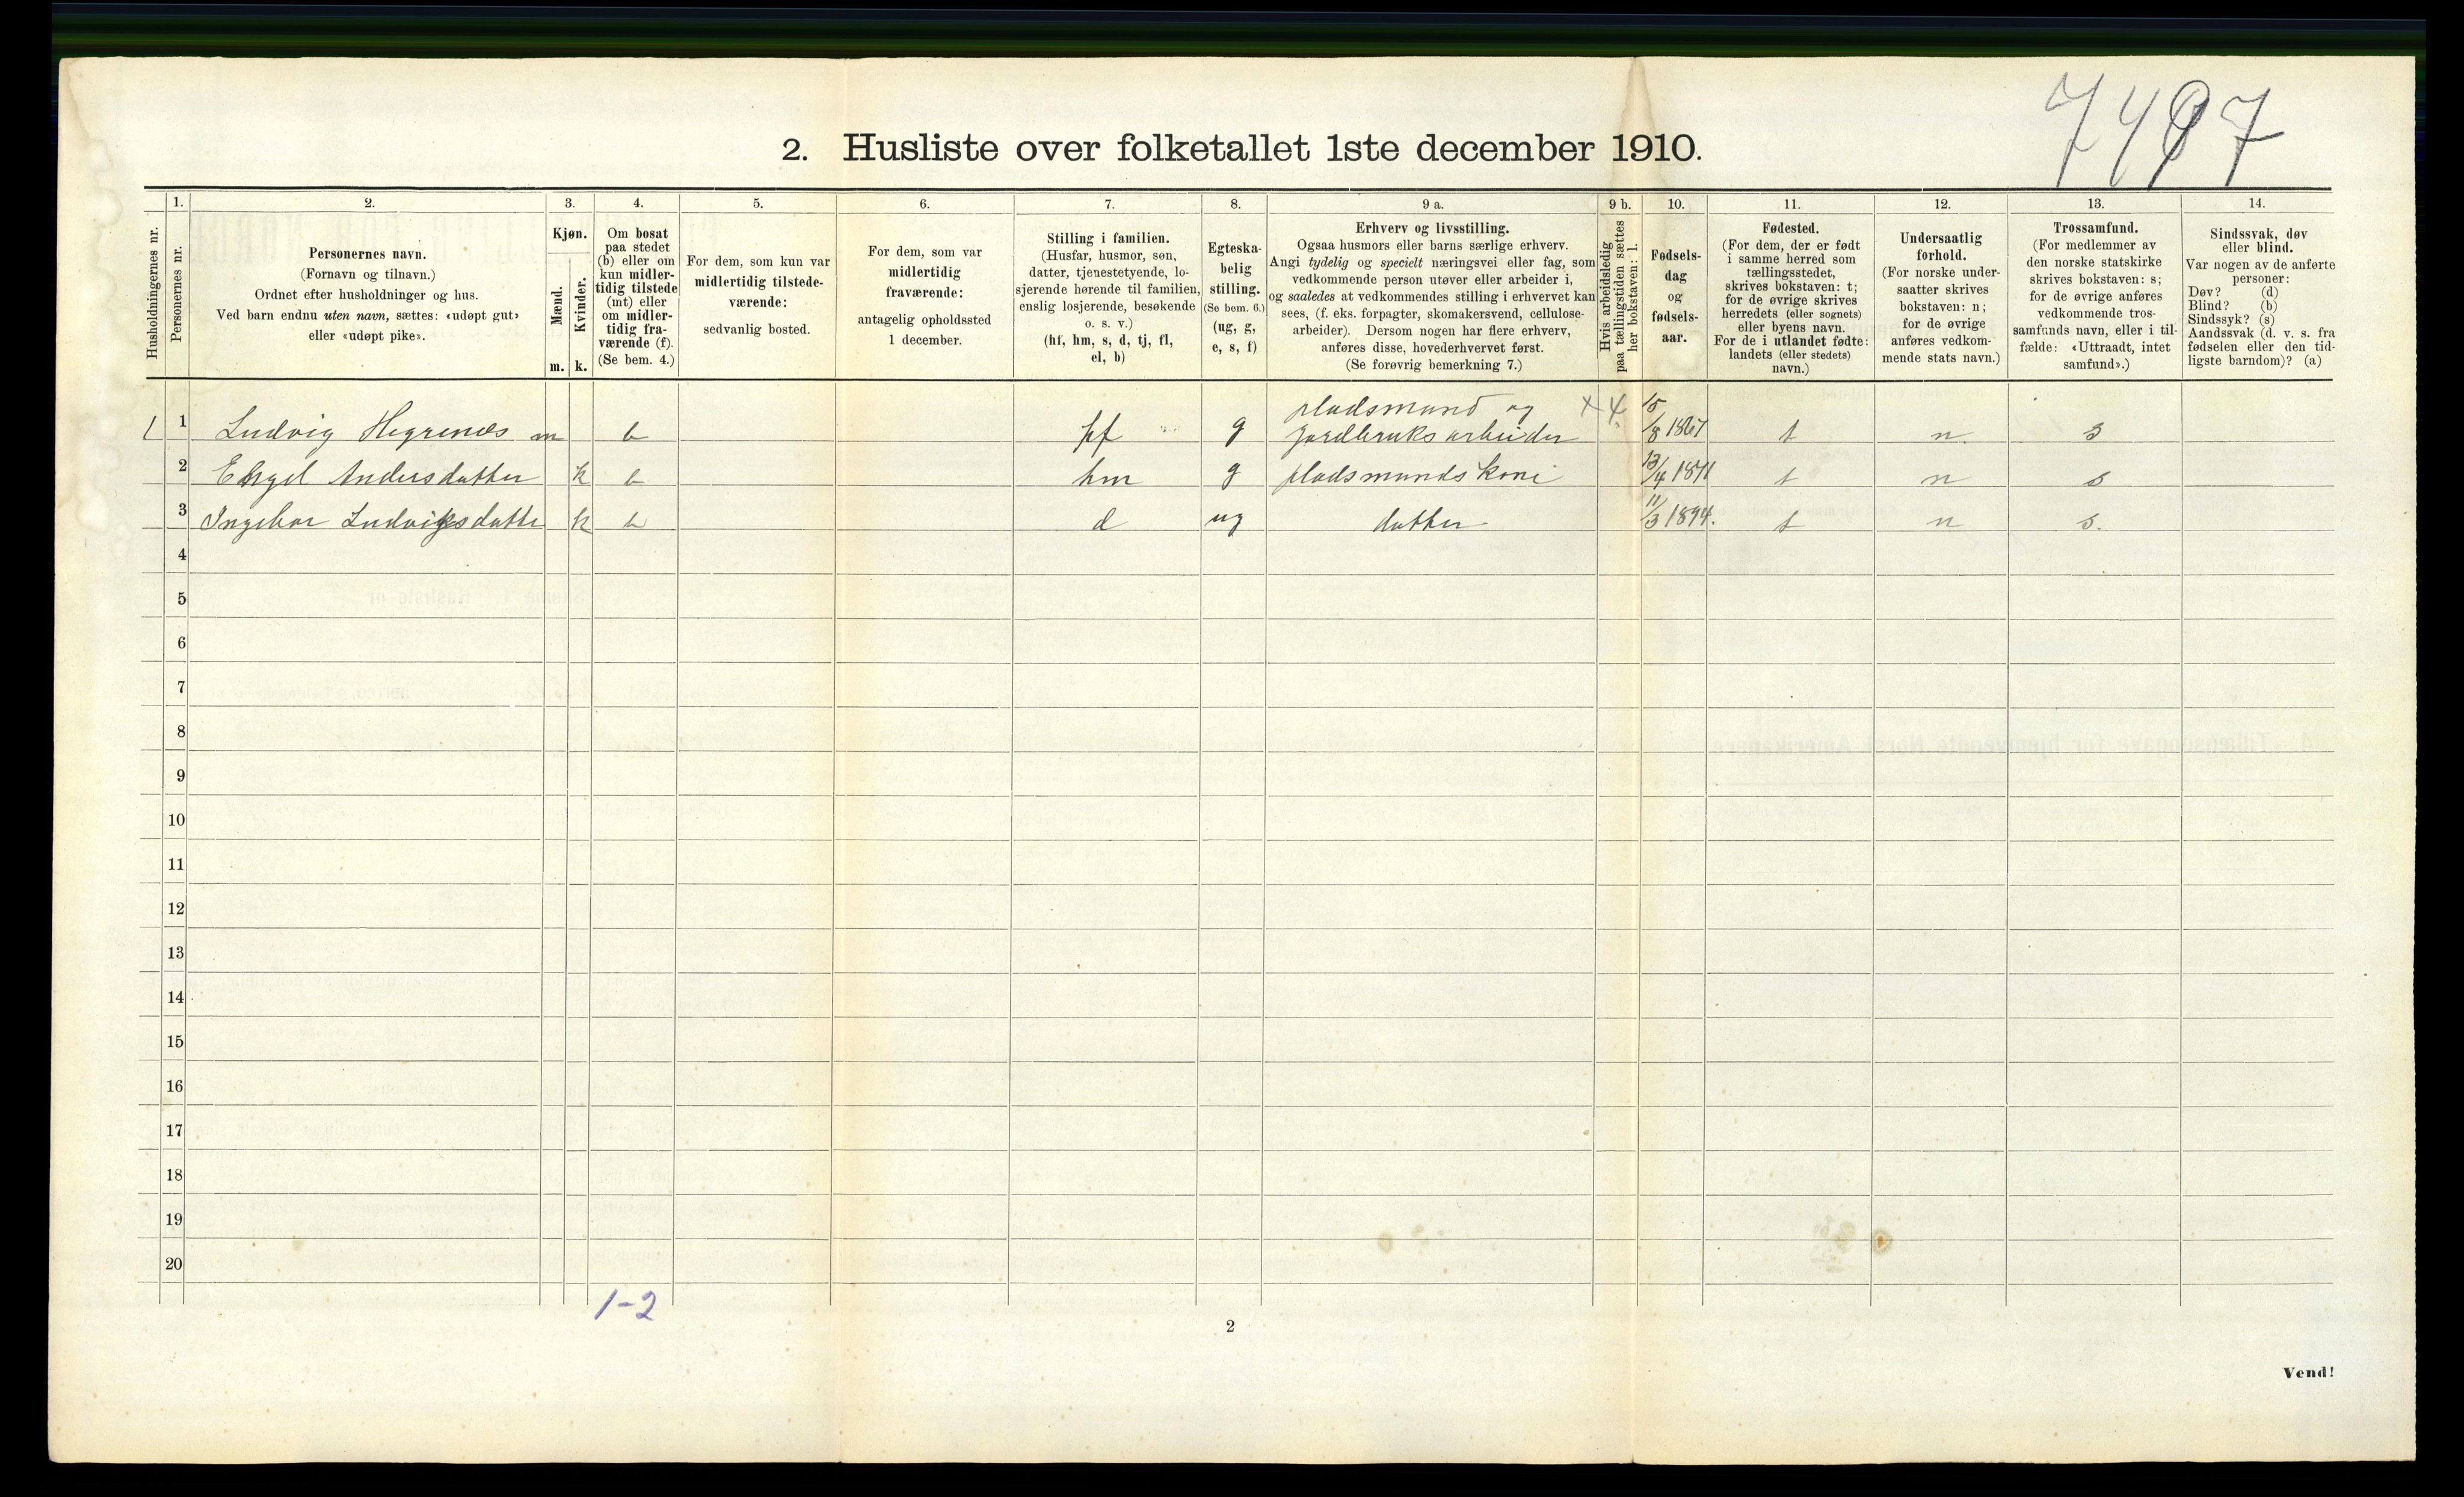 7487
2. Husliste over folketallet 1ste december 1910.
Husholdningernes nr.
1.
Personernes nr.
2.
Personernes navn.
(Fornavn og tilnavn.)
Ordnet efter husholdninger og hus.
Ved barn endnu uten navn, sættes: «udøpt gut»
eller «udøpt pike».
3.
Kjøn.
Mænd.
Kvinder.
m. k.
4.
Om bosat
paa stedet
(b) eller om
kun midler-
tidig tilstede
(mt) eller
om midler-
tidig fra-
værende (f).
(Se bem. 4.)
5.
For dem, som kun var
midlertidig tilstede-
værende:
sedvanlig bosted.
6.
For dem, som var
midlertidig
fraværende:
antagelig opholdssted
1 december.
7.
Stilling i familien.
(Husfar, husmor, søn,
datter, tjenestetyende, lo-
sjerende hørende til familien,
enslig losjerende, besøkende
o. s. v.)
(hf, hm, s, d, tj, fl,
el, b)
8.
Egteska-
belig
stilling.
(Se bem. 6.)
(ug, g,
e, s, f)
9 a.
Erhverv og livsstilling.
Ogsaa husmors eller barns særlige erhverv.
Angi tydelig og specielt næringsvei eller fag, som
vedkommende person utøver eller arbeider i,
og saaledes at vedkommendes stilling i erhvervet kan
sees, (f. eks. forpagter, skomakersvend, cellulose-
arbeider). Dersom nogen har flere erhverv,
anføres disse, hovederhvervet først.
(Se forøvrig bemerkning 7.)
9 b.
Hvis arbeidsledig
paa tællingstiden sættes
her bokstaven: l.
10.
Fødsels-
dag
og
fødsels-
aar.
11.
Fødested.
(For dem, der er født
i samme herred som
tællingsstedet,
skrives bokstaven: t;
for de øvrige skrives
herredets (eller sognets)
eller byens navn.
For de i utlandet fødte:
landets (eller stedets)
navn.)
12.
Undersaatlig
forhold.
(For norske under-
saatter skrives
bokstaven: n;
for de øvrige
anføres vedkom-
mende stats navn.)
13.
Trossamfund.
(For medlemmer av
den norske statskirke
skrives bokstaven: s;
for de øvrige anføres
vedkommende tros-
samfunds navn, eller i til-
fælde: «Uttraadt, intet
samfund».)
14.
Sindssvak, døv
eller blind.
Var nogen av de anførte
personer:
Døv? (d)
Blind? (b)
Sindssyk? (s)
Aandssvak (d. v. s. fra
fødselen eller den tid-
ligste barndom)? (a)
1 1 Ludvig Hegrenæs m b hf g pladsmand og jordbruksarbeider x 4. 15/8 1867 t n. s
2 Engel Andersdatter k b hm g pladsmands kone 13/4 1871 t n s
3 Ingebor Ludviksdatte k b d ug datter 11/3 1894. t n s.
4
5
6
7
8
9
10
11
12
13
14
15
16
17
18
19
20
1-2
2
Vend!